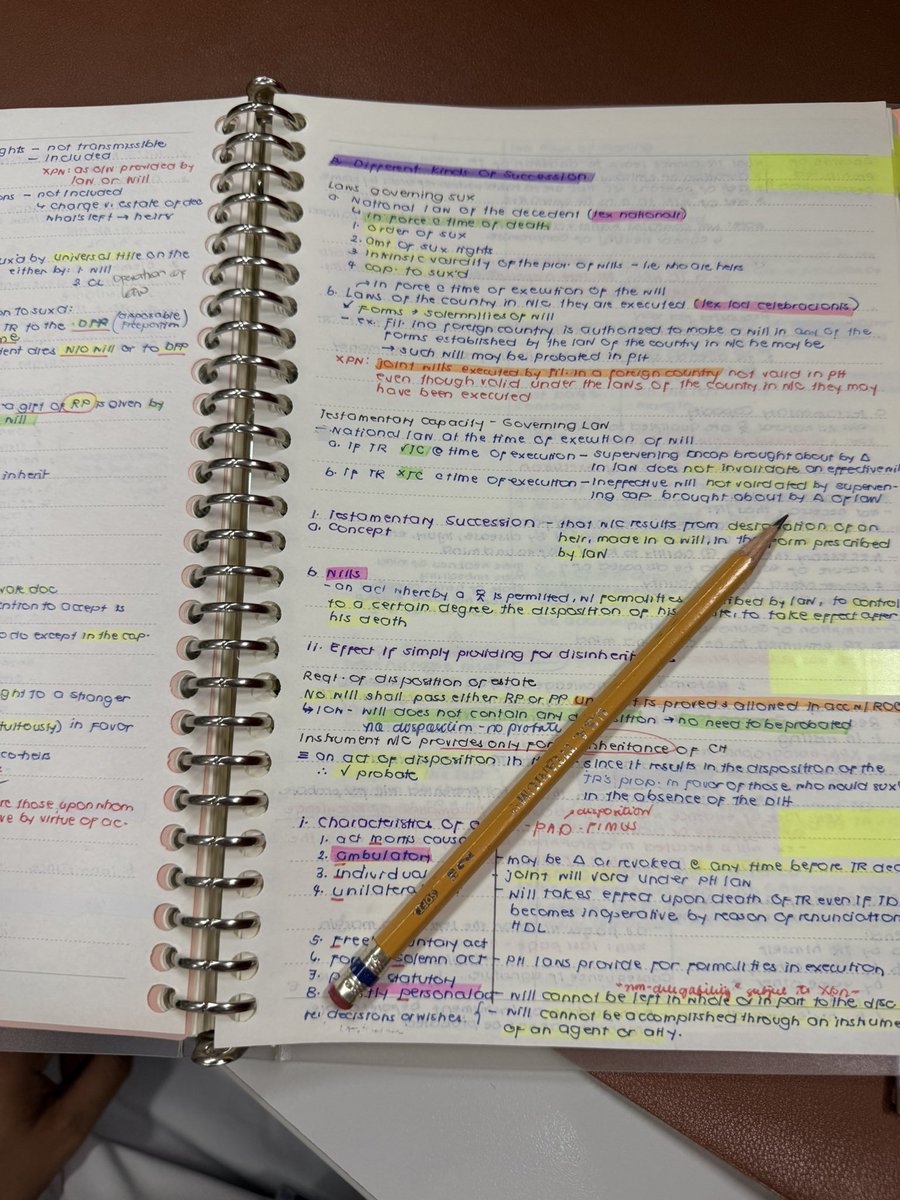 ghts - not transmissible
- included
XPN: as o/w provided by
law or will
ons - not included
↳ charge vs. estate of dec
what's left → heirs
sux'd by universal title on the
either by: 1. will
2. OL operation of
law
on to sux'd:
TR to the DPP (disposable
proportion)
dent dies w/o will or to DPP
a gift of RP is given by
will
inherit
work doc
ention to accept is
o do except in the cap.
ght to a stranger
tuitously) in favor
co-heirs
re those upon whom
ve by virtue of ac.
B. Different kinds of Succession
Laws governing sux
a. National law of the decedent (lex nationali)
↳ in force @ time of death
1. order of sux
2. amt of sux rights
3. intrinsic validity of the prov. of wills - i.e. who are heirs
4. cap. to sux'd
→ in force @ time of execution of the will
b. Laws of the country in w/c they are executed (lex loci celebracionis)
✓ Forms & solemnities of will
- ex. Fil. in a foreign country is authorized to make a will in any of the
forms established by the law of the country in w/c he may be
→ such will may be probated in PH
XPN: joint wills executed by Fil. in a foreign country not valid in PH
even though valid under the laws of the country in w/c they may
have been executed
Testamentary capacity - Governing Law
- National law at the time of execution of will
a. If TR √TC @ time of execution - supervening incap brought about by Δ
in law does not invalidate an effective wil
b. If TR XTC @ time of execution - ineffective will not validated by superven-
ing cap brought about by Δ of law
1. Testamentary Succession - that w/c results from desig ation of an
a. Concept heir, made in a will, in the form prescribed
by law
b. Wills
- an act whereby a is permitted, w/ formalities ribed by law, to control
to a certain degree the disposition of his te, to take effect after
his death
ii. Effect if simply providing for disinherit
Reqt. of disposition of estate
No will shall pass either RP or PP un it is proved & allowed in acc w/ ROC
↳ IOW - will does not contain any d sition → no need to be probated
no disposition - no probate
Instrument w/c provides only for inheritance of CH
≡ an act of disposition in it - since it results in the disposition of the
∴ ✓ probate TR's prop. in favor of those who would sux
in the absence of the DIH
disposition
i. Characteristics of - PAD - FIMUS
1. act mortis caus
2. ambulatory - may be Δ or revoked @ any time before TR dea
3. Individual - joint will void under PH law
4. unilatera - will takes effect upon death of TR even if TD
becomes inoperative by reason of renunciation
HDL
5. Free untary act
6. fo solemn act - PH laws provide for formalities in execution
7. statutory
"non-delegability" subject to XPN-
8. tly personal act - will cannot be left in whole or in part to the disc
re: decisions or wishes. - will cannot be accomplished through an instrume
of an agent or atty.